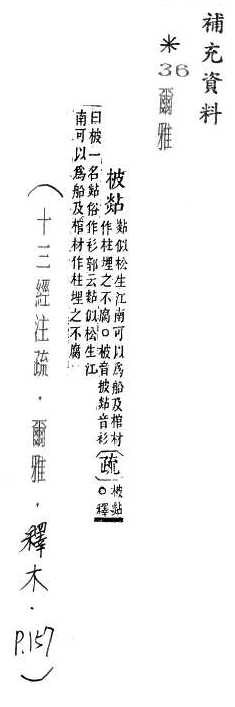 補充資料
＊36爾雅
柀煔
煔似松生江南可以爲船及棺材
作柱埋之不腐○柀音披煔音衫
疏
柀煔
○釋
曰柀一名煔俗作杉郭云煔似松生江
南可以爲船及棺材作柱埋之不腐
（十三經注疏．爾雅．釋木．P.157）